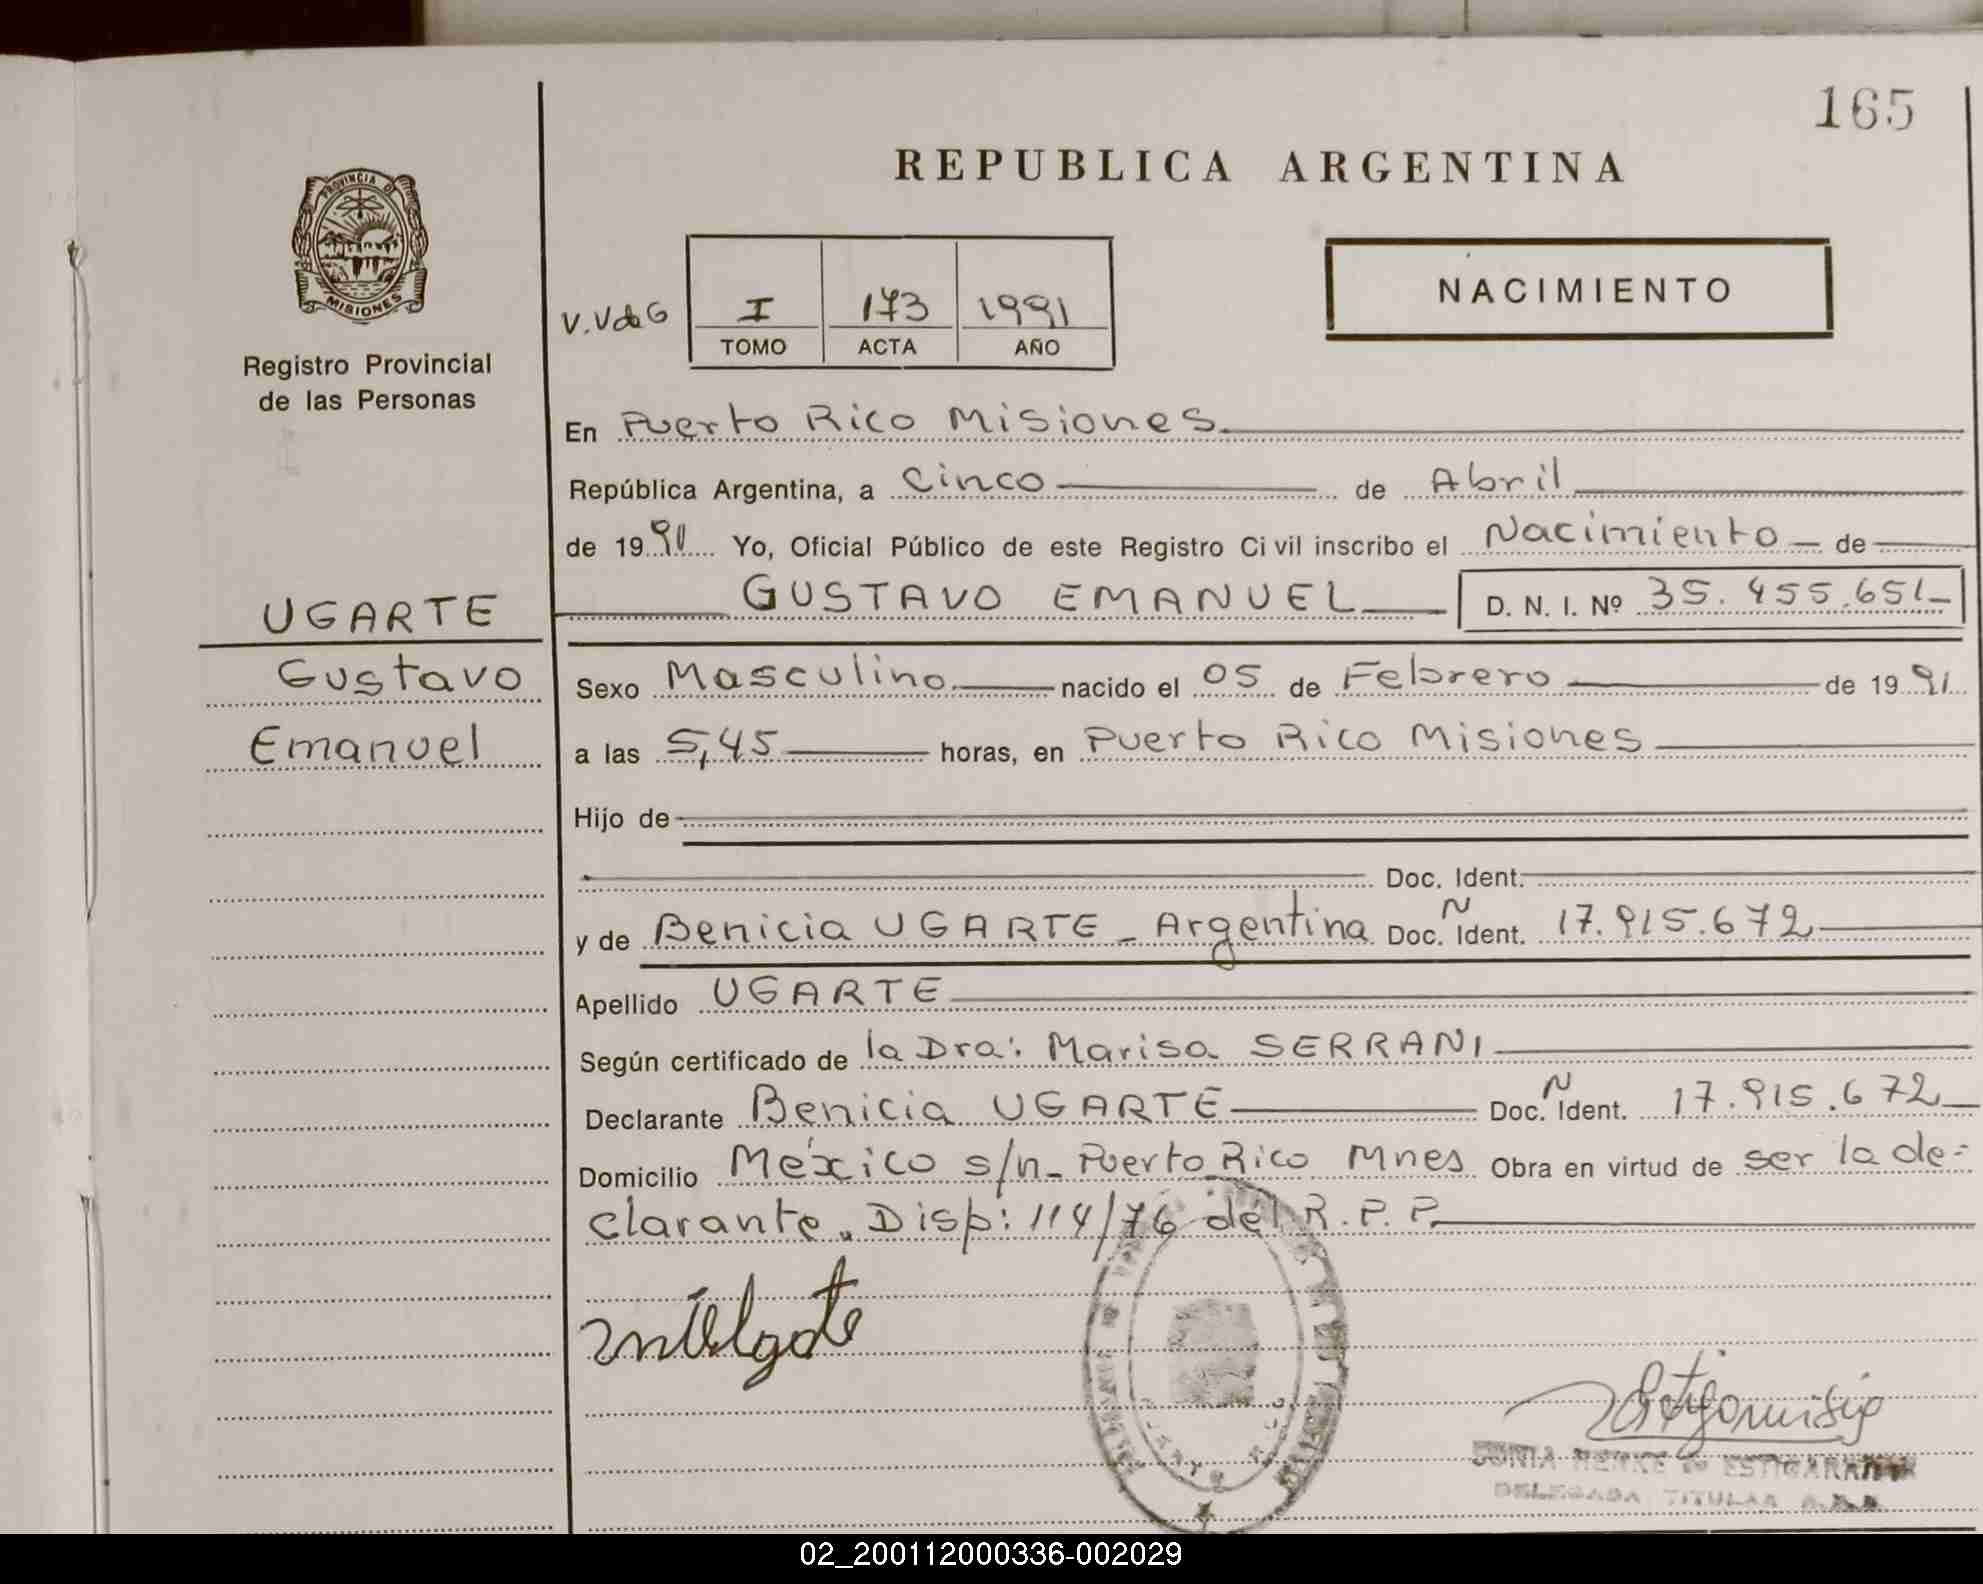 165
REPUBLICA ARGENTINA
PROVINCIA DE
MISIONES
Registro Provincial
de las Personas
V.V de G
I 173 1991
TOMO ACTA AÑO
NACIMIENTO
En Puerto Rico Misiones
República Argentina, a Cinco de Abril
de 1991 Yo, Oficial Público de este Registro Civil inscribo el Nacimiento de
GUSTAVO EMANUEL D. N. I. Nº 35.455.651
UGARTE
Gustavo
Emanuel
Sexo Masculino nacido el 05 de Febrero de 1991
a las 5,45 horas, en Puerto Rico Misiones
Hijo de
Doc. Ident.
y de Benicia UGARTE - Argentina Doc. N Ident. 17.915.672
Apellido UGARTE
Según certificado de la Dra: Marisa SERRANI
Declarante Benicia UGARTE Doc. N Ident. 17.915.672
Domicilio México s/n - Puerto Rico Mnes Obra en virtud de ser la de-
clarante. Disp: 114/76 del R.P.P.
ESTIGARRIBIA
DELEGADA TITULAR
02_200112000336-002029